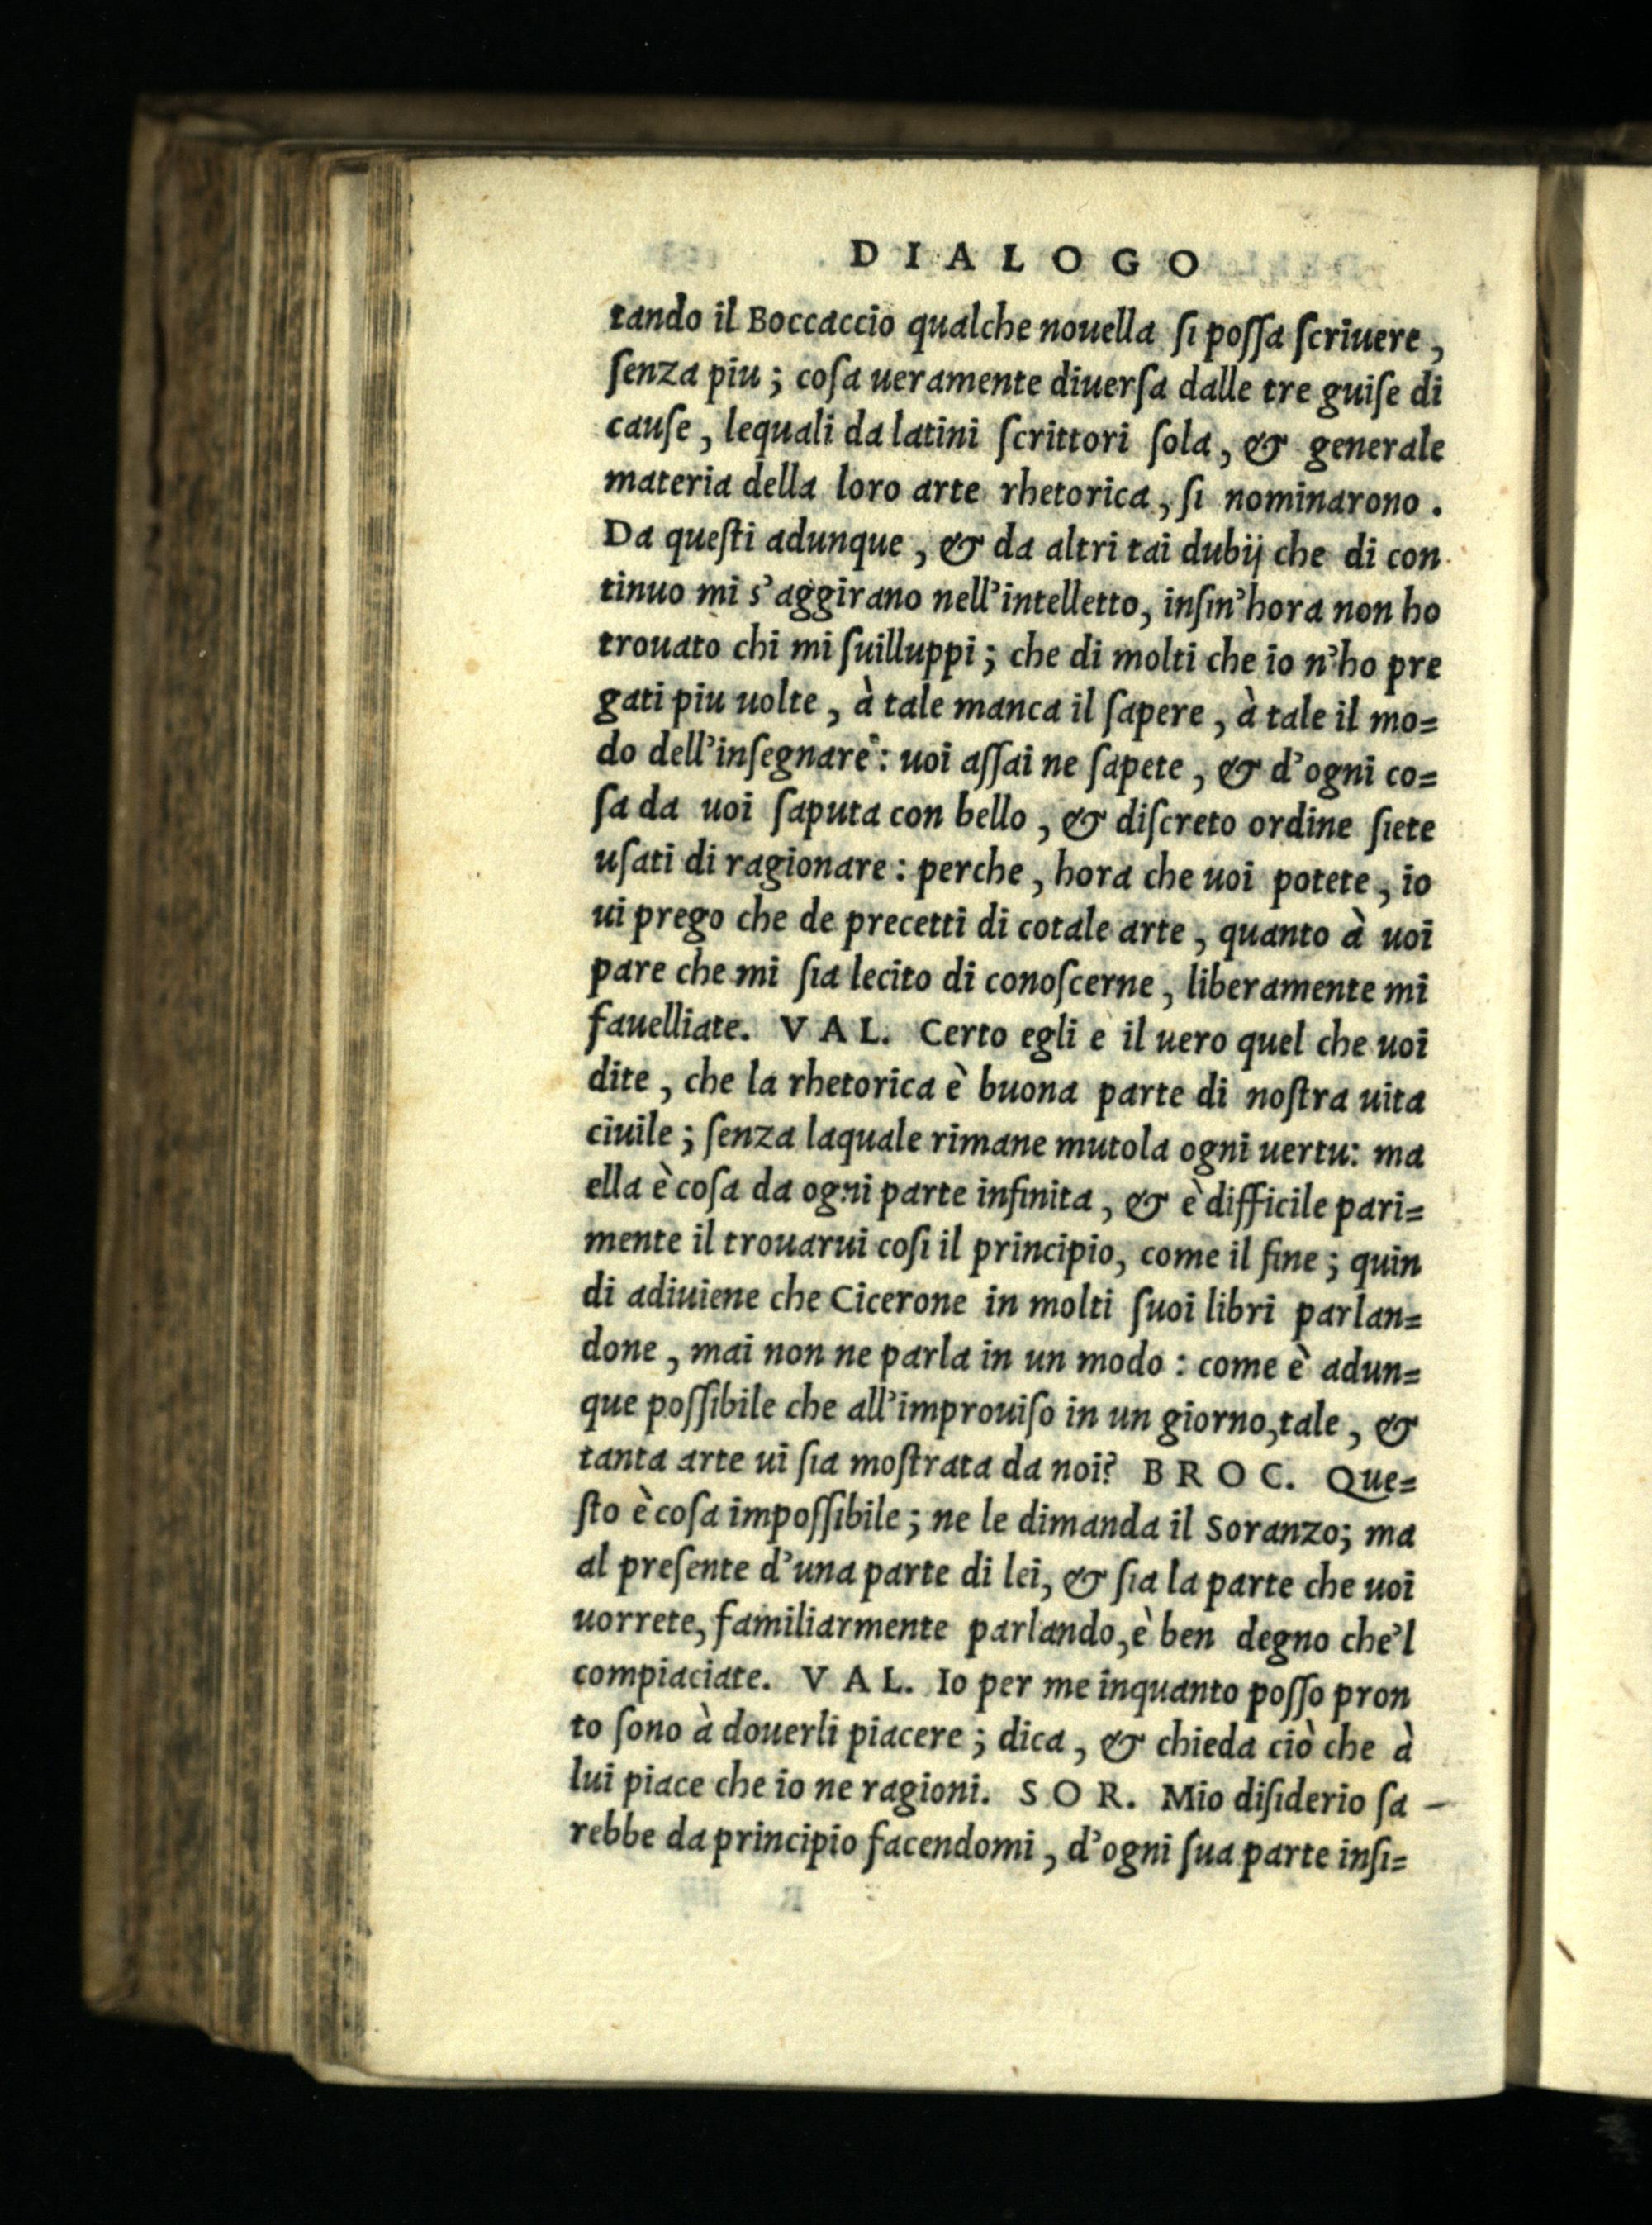 DIALOGO
tando il Boccaccio qualche nouella ſi poſſa ſcriuere,
ſenza piu; coſa ueramente diuerſa dalle tre guiſe di
cauſe, lequali da latini ſcrittori ſola, & generale
materia della loro arte rhetorica, ſi nominarono.
Da queſti adunque, & da altri tai dubij che di con
tinuo mi s'aggirano nell'intelletto, inſin'hora non ho
trouato chi mi ſuilluppi; che di molti che io n'ho pre
gati piu uolte, à tale manca il ſapere, à tale il mo=
do dell'inſegnare: uoi aſſai ne ſapete, & d'ogni co=
ſa da uoi ſaputa con bello, & diſcreto ordine ſiete
uſati di ragionare: perche, hora che uoi potete, io
ui prego che de precetti di cotale arte, quanto à uoi
pare che mi ſia lecito di conoſcerne, liberamente mi
fauelliate. VAL. Certo egli è il uero quel che uoi
dite, che la rhetorica è buona parte di noſtra uita
ciuile; ſenza laquale rimane mutola ogni uertu: ma
ella è coſa da ogni parte infinita, & è difficile pari=
mente il trouarui coſi il principio, come il fine; quin
di adiuiene che Cicerone in molti ſuoi libri parlan=
done, mai non ne parla in un modo: come è adun=
que poſſibile che all'improuiſo in un giorno, tale, &
tanta arte ui ſia moſtrata da noi? BROC. Que=
ſto è coſa impoſſibile; ne le dimanda il Soranzo; ma
al preſente d'una parte di lei, & ſia la parte che uoi
uorrete, familiarmente parlando, è ben degno che'l
compiaciate. VAL. Io per me inquanto poſſo pron
to ſono à douerli piacere; dica, & chieda ciò che à
lui piace che io ne ragioni. SOR. Mio diſiderio ſa
rebbe da principio facendomi, d'ogni ſua parte inſi=